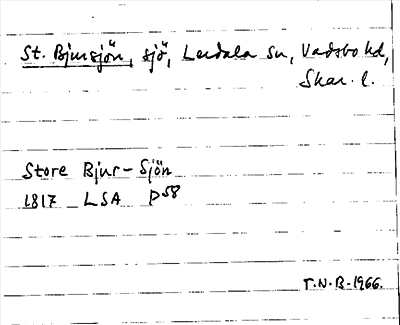 St. Bjursjön, sjö, Lerdala sn, Vadsbo hd,
Skar. l.
Store Bjur-Sjön
1817 LSA P58
T.N.B-1966.